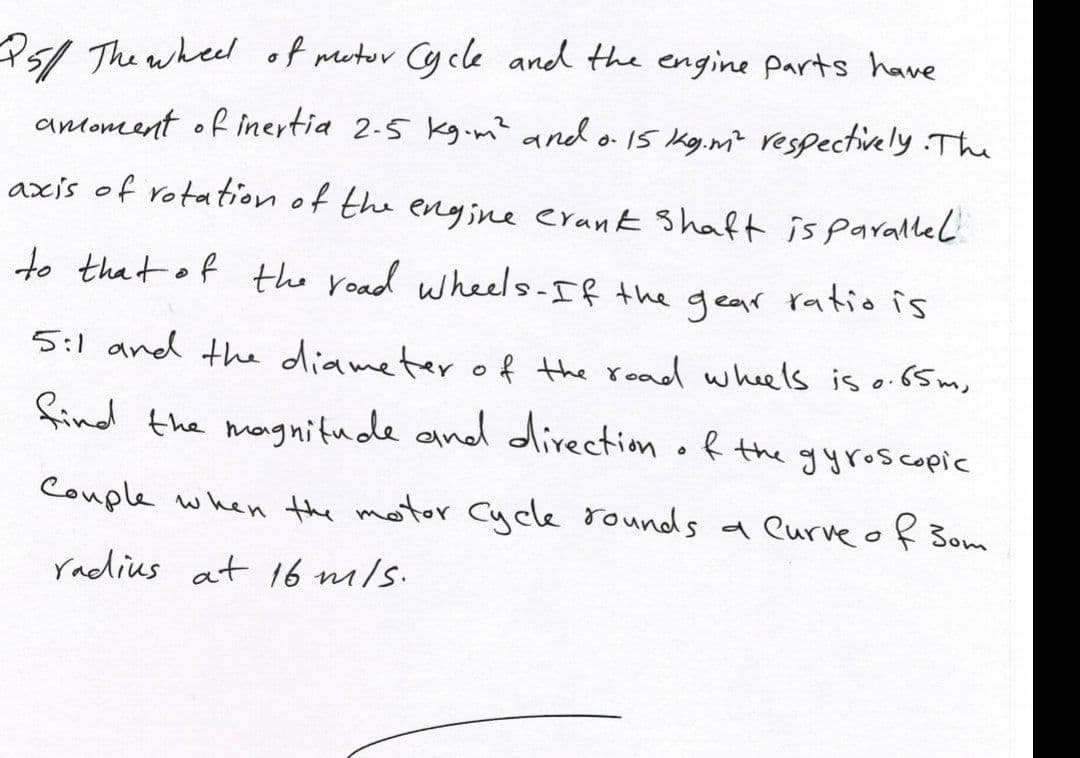 Q5// The wheel of motor Cycle and the engine parts have
amoment of inertia 2.5 kg.m² and 0.15 kg.m² respectively. The
axis of rotation of the engine crank shaft is parallel
to that of the road wheels. If the gear ratio is
5:1 and the diameter of the road wheels is 0.65m,
find the magnitude and direction of the gyroscopic
Couple when the motor Cycle rounds a Curve of 30m
radius at 16 m/s.